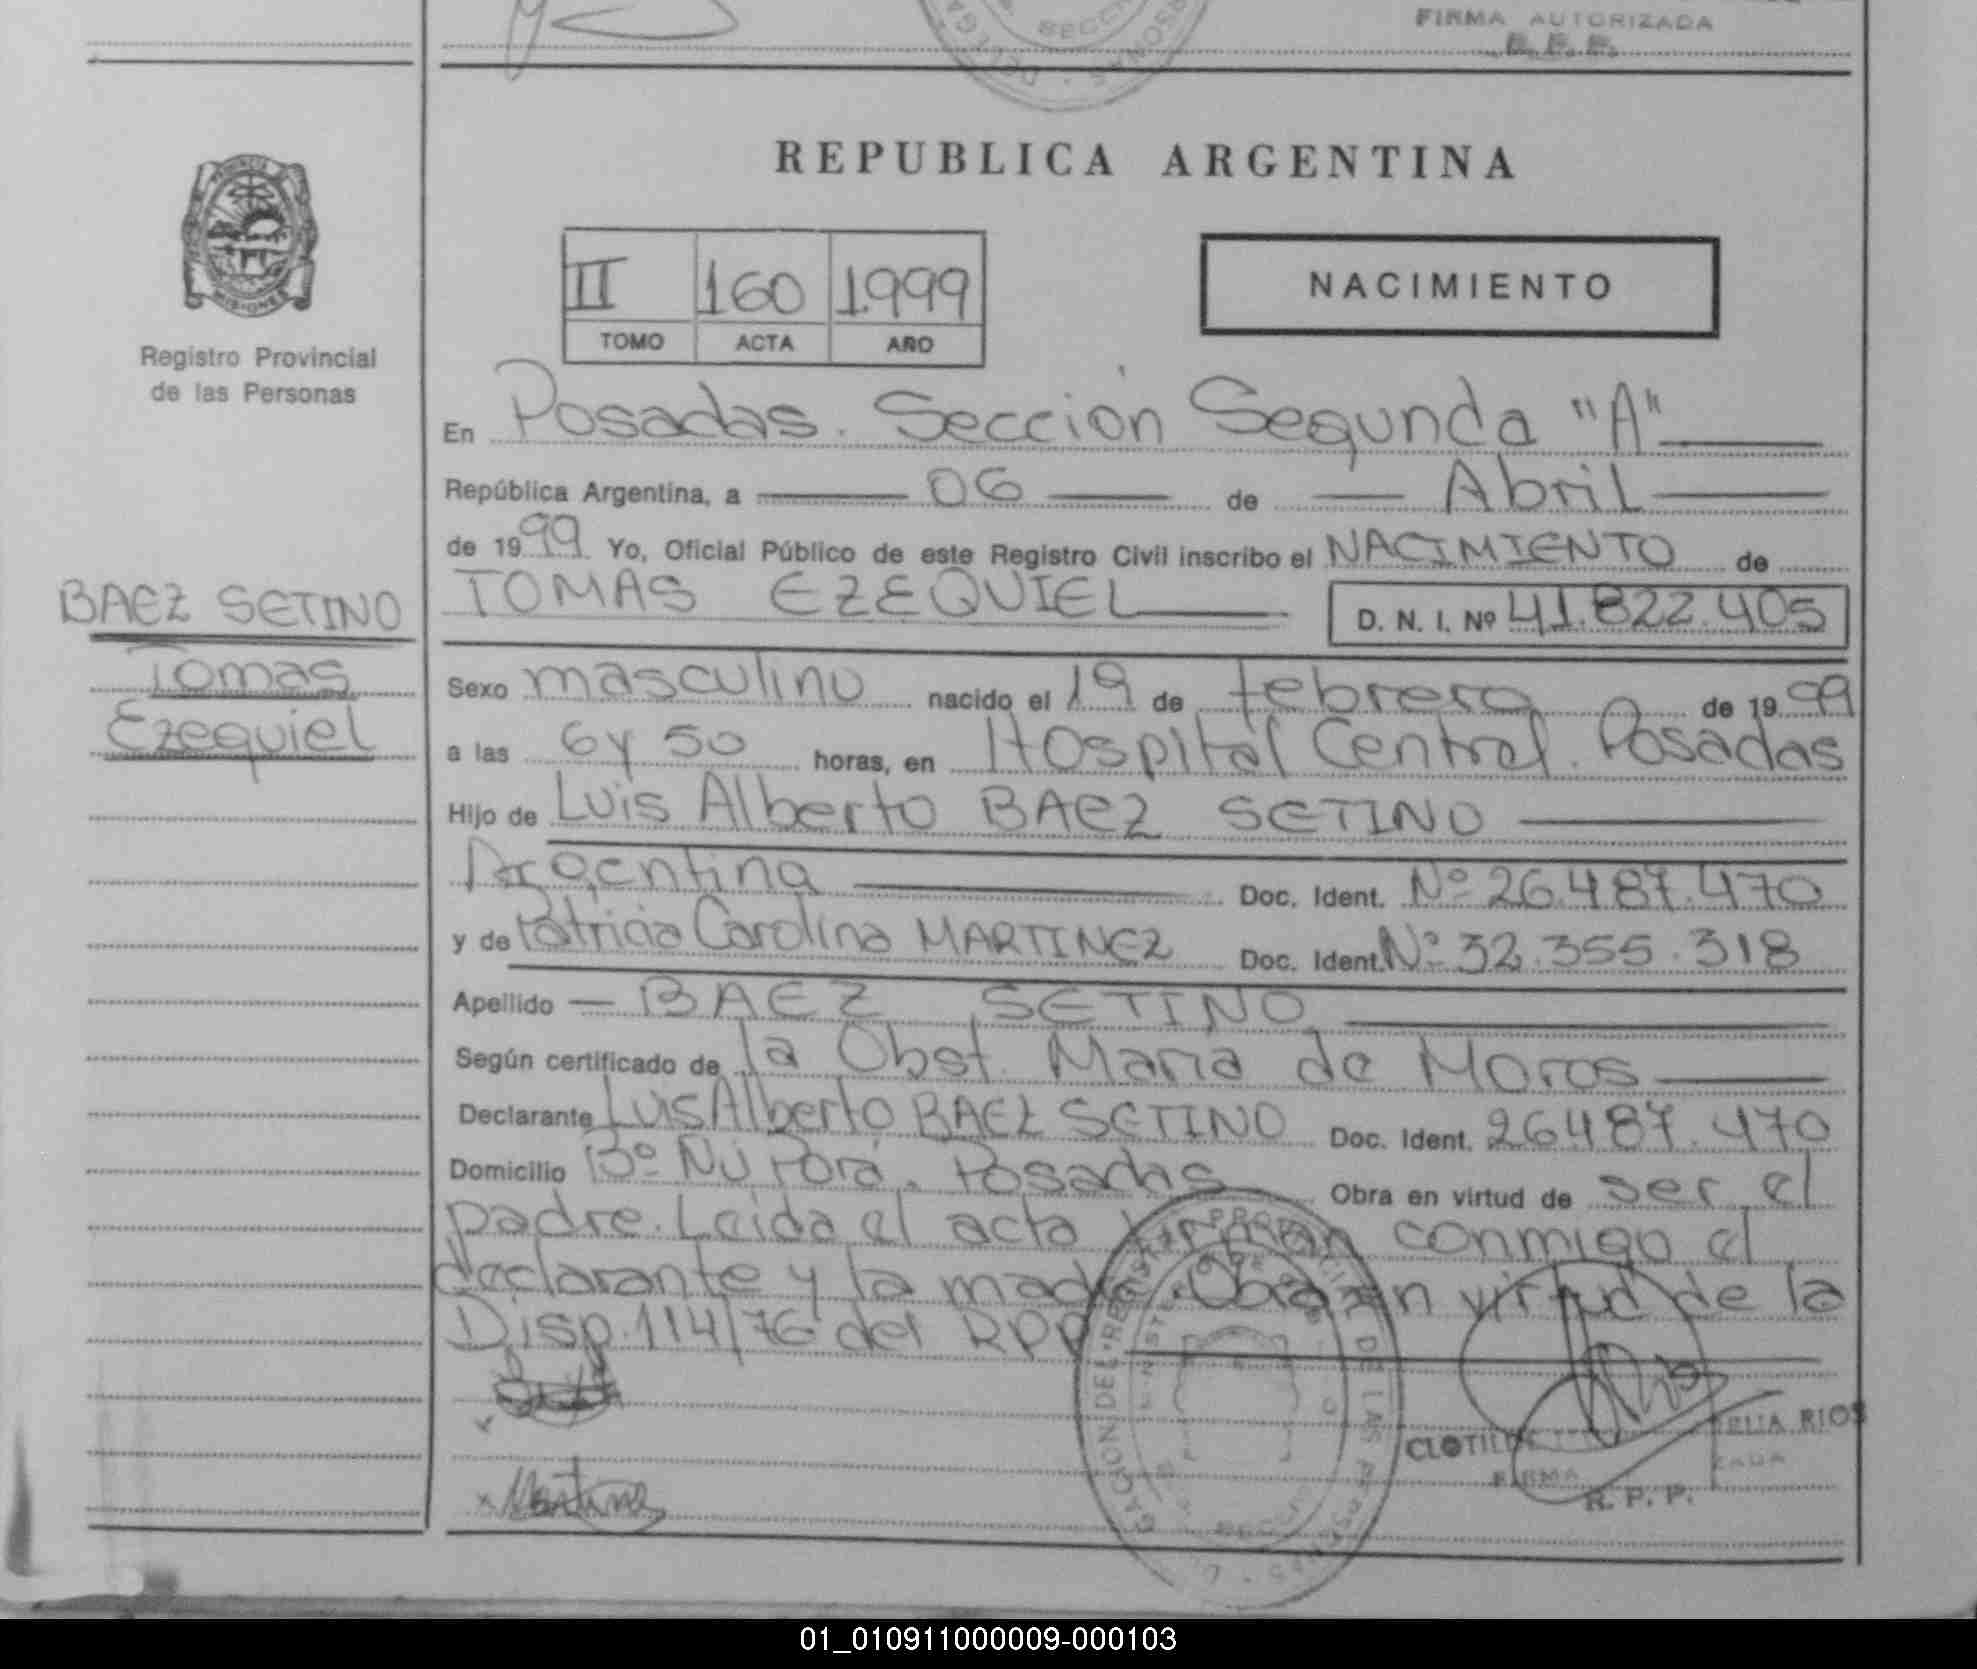 FIRMA AUTORIZADA
R. P. P.
REPUBLICA ARGENTINA
PROVINCIA
MISIONES
Registro Provincial
de las Personas
II 160 1.999
TOMO ACTA AÑO
NACIMIENTO
En Posadas. Sección Segunda "A"
República Argentina, a 06 de Abril
de 1999 Yo, Oficial Público de este Registro Civil inscribo el NACIMIENTO de
TOMAS EZEQUIEL D. N. I. Nº 41.822.405
BAEZ SETINO
Tomas
Ezequiel
Sexo masculino nacido el 19 de febrero de 1999
a las 6 y 50 horas, en Hospital Central. Posadas
Hijo de Luis Alberto BAEZ SETINO
Argentina Doc. Ident. Nº 26.487.470
y de Patricia Carolina MARTINEZ Doc. Ident. Nº 32.355.318
Apellido BAEZ SETINO
Según certificado de la Obst. Maria de Moros
Declarante Luis Alberto BAEZ SETINO Doc. Ident. 26.487.470
Domicilio Bº Ñu Porá. Posadas Obra en virtud de ser el
padre. Leida el acta firman conmigo el
declarante y la madre. Obra en virtud de la
Disp. 114/76 del RPP
CLOTILDE ELIA RIOS
FIRMA
R. P. P.
x Martinez
01_010911000009-000103